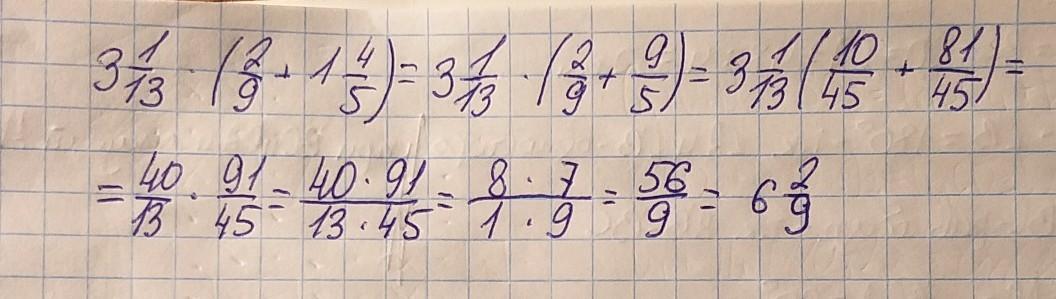 3 1/13 · (2/9 + 1 4/5) = 3 1/13 · (2/9 + 9/5) = 3 1/13 (10/45 + 81/45) =
= 40/13 · 91/45 = 40 · 91/13 · 45 = 8 · 7/1 · 9 = 56/9 = 6 2/9